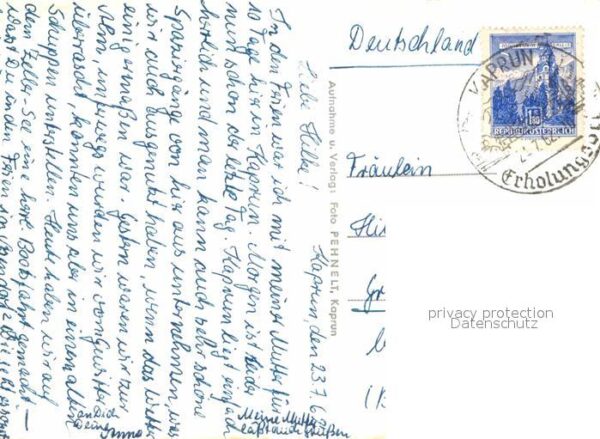 Kaprun, den 23.7.6
Liebe Hilke!
In den Ferien war ich mit meiner Mutter für
10 Tage hier in Kaprun. Morgen ist leider
nun schon der letzte Tag. Kaprun liegt einfach
herrlich und man kann auch sehr schöne
Spaziergänge von hier aus unternehmen, was
wir auch ausgenutzt haben, wenn das Wetter
einigermaßen war. Gestern waren wir zur
Alm, unterwegs wurden wir vom Gewitter
überrascht konnten uns aber in einem alten
Schuppen unterstellen. Heute haben wir auf
dem Zeller-See eine herrl. Bootsfahrt gemacht —
Warst Du in den Ferien in
an Dich
Deine
Meine Mutter
läßt auch grüßen
Aufnahme u. Verlag: Foto PEHNELT, Kaprun
Deutschland
Fräulein
privacy protection
Datenschutz
KAPRUN
REPUBLIK ÖSTERREICH
Erholungsort